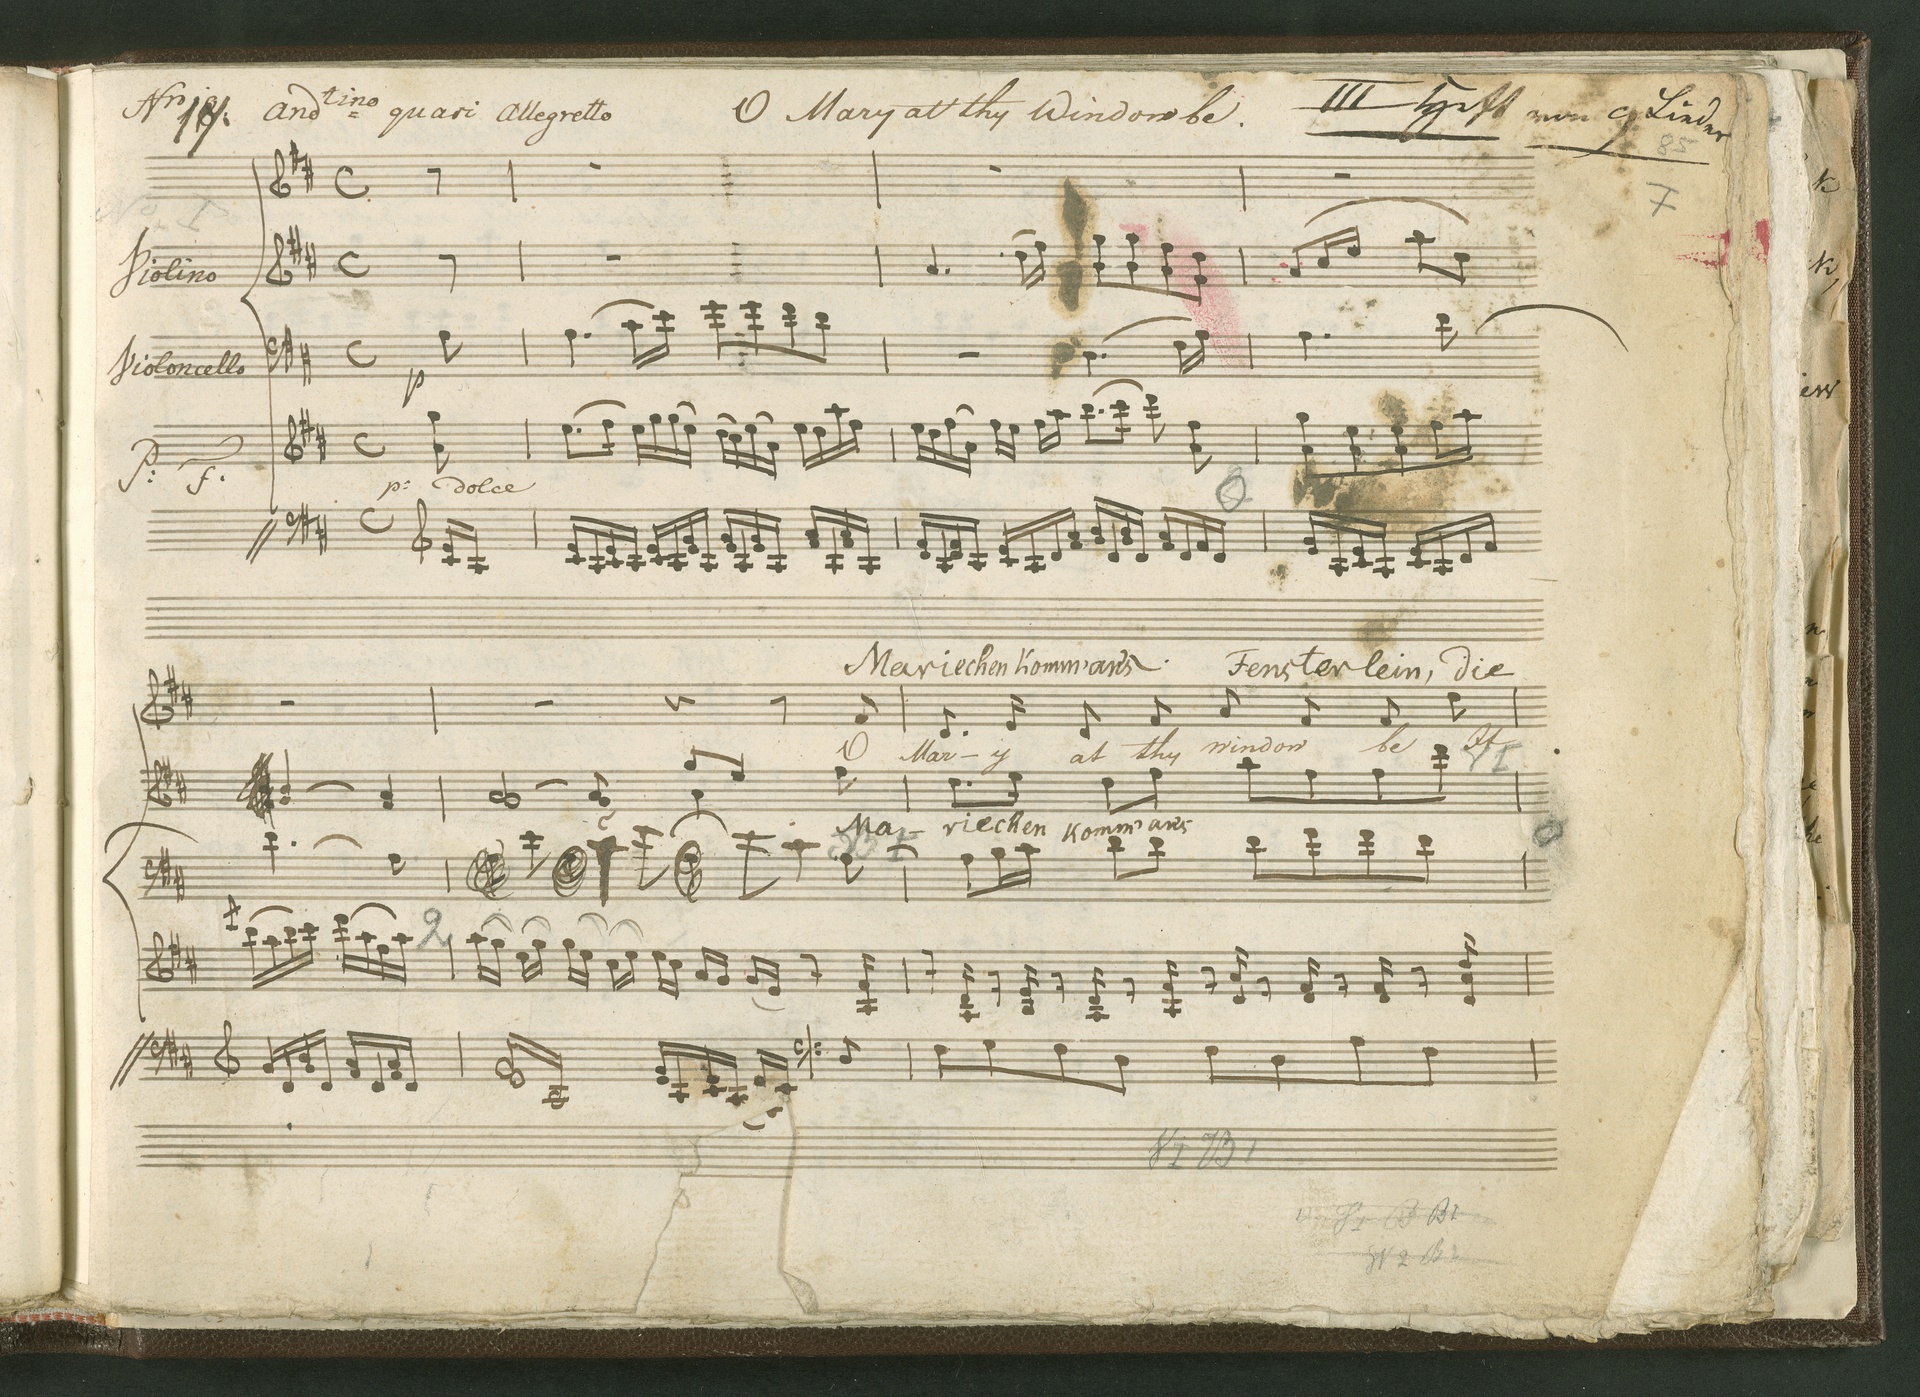 Nro andtino quasi Allegretto O Mary at thy Window be. III Heft von 9 Lieder
85
7
Violino
Violoncello
p
P: F.
p: dolce
8
Mariechen komm' ans Fensterlein, die
O Mar-y at thy window be It
VI
Ma-riechen komm' ans
2